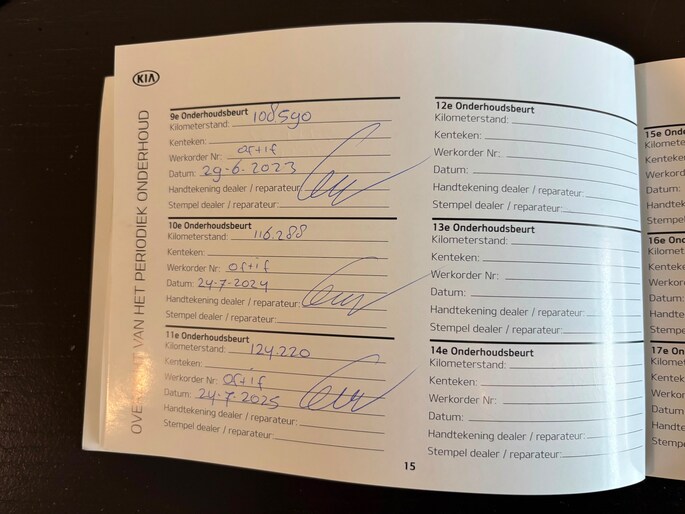 KIA
OVERZICHT VAN HET PERIODIEK ONDERHOUD
9e Onderhoudsbeurt
Kilometerstand: 108590
Kenteken:
Werkorder Nr: ortif
Datum: 29-6-2023
Handtekening dealer / reparateur:
Stempel dealer / reparateur:
10e Onderhoudsbeurt
Kilometerstand: 116.288
Kenteken:
Werkorder Nr: ortif
Datum: 24-7-2024
Handtekening dealer / reparateur:
Stempel dealer / reparateur:
11e Onderhoudsbeurt
Kilometerstand: 124.220
Kenteken:
Werkorder Nr: ortif
Datum: 24-7-2025
Handtekening dealer / reparateur:
Stempel dealer / reparateur:
12e Onderhoudsbeurt
Kilometerstand:
Kenteken:
Werkorder Nr:
Datum:
Handtekening dealer / reparateur:
Stempel dealer / reparateur:
13e Onderhoudsbeurt
Kilometerstand:
Kenteken:
Werkorder Nr:
Datum:
Handtekening dealer / reparateur:
Stempel dealer / reparateur:
14e Onderhoudsbeurt
Kilometerstand:
Kenteken:
Werkorder Nr:
Datum:
Handtekening dealer / reparateur:
Stempel dealer / reparateur:
15
15e
16e
17e